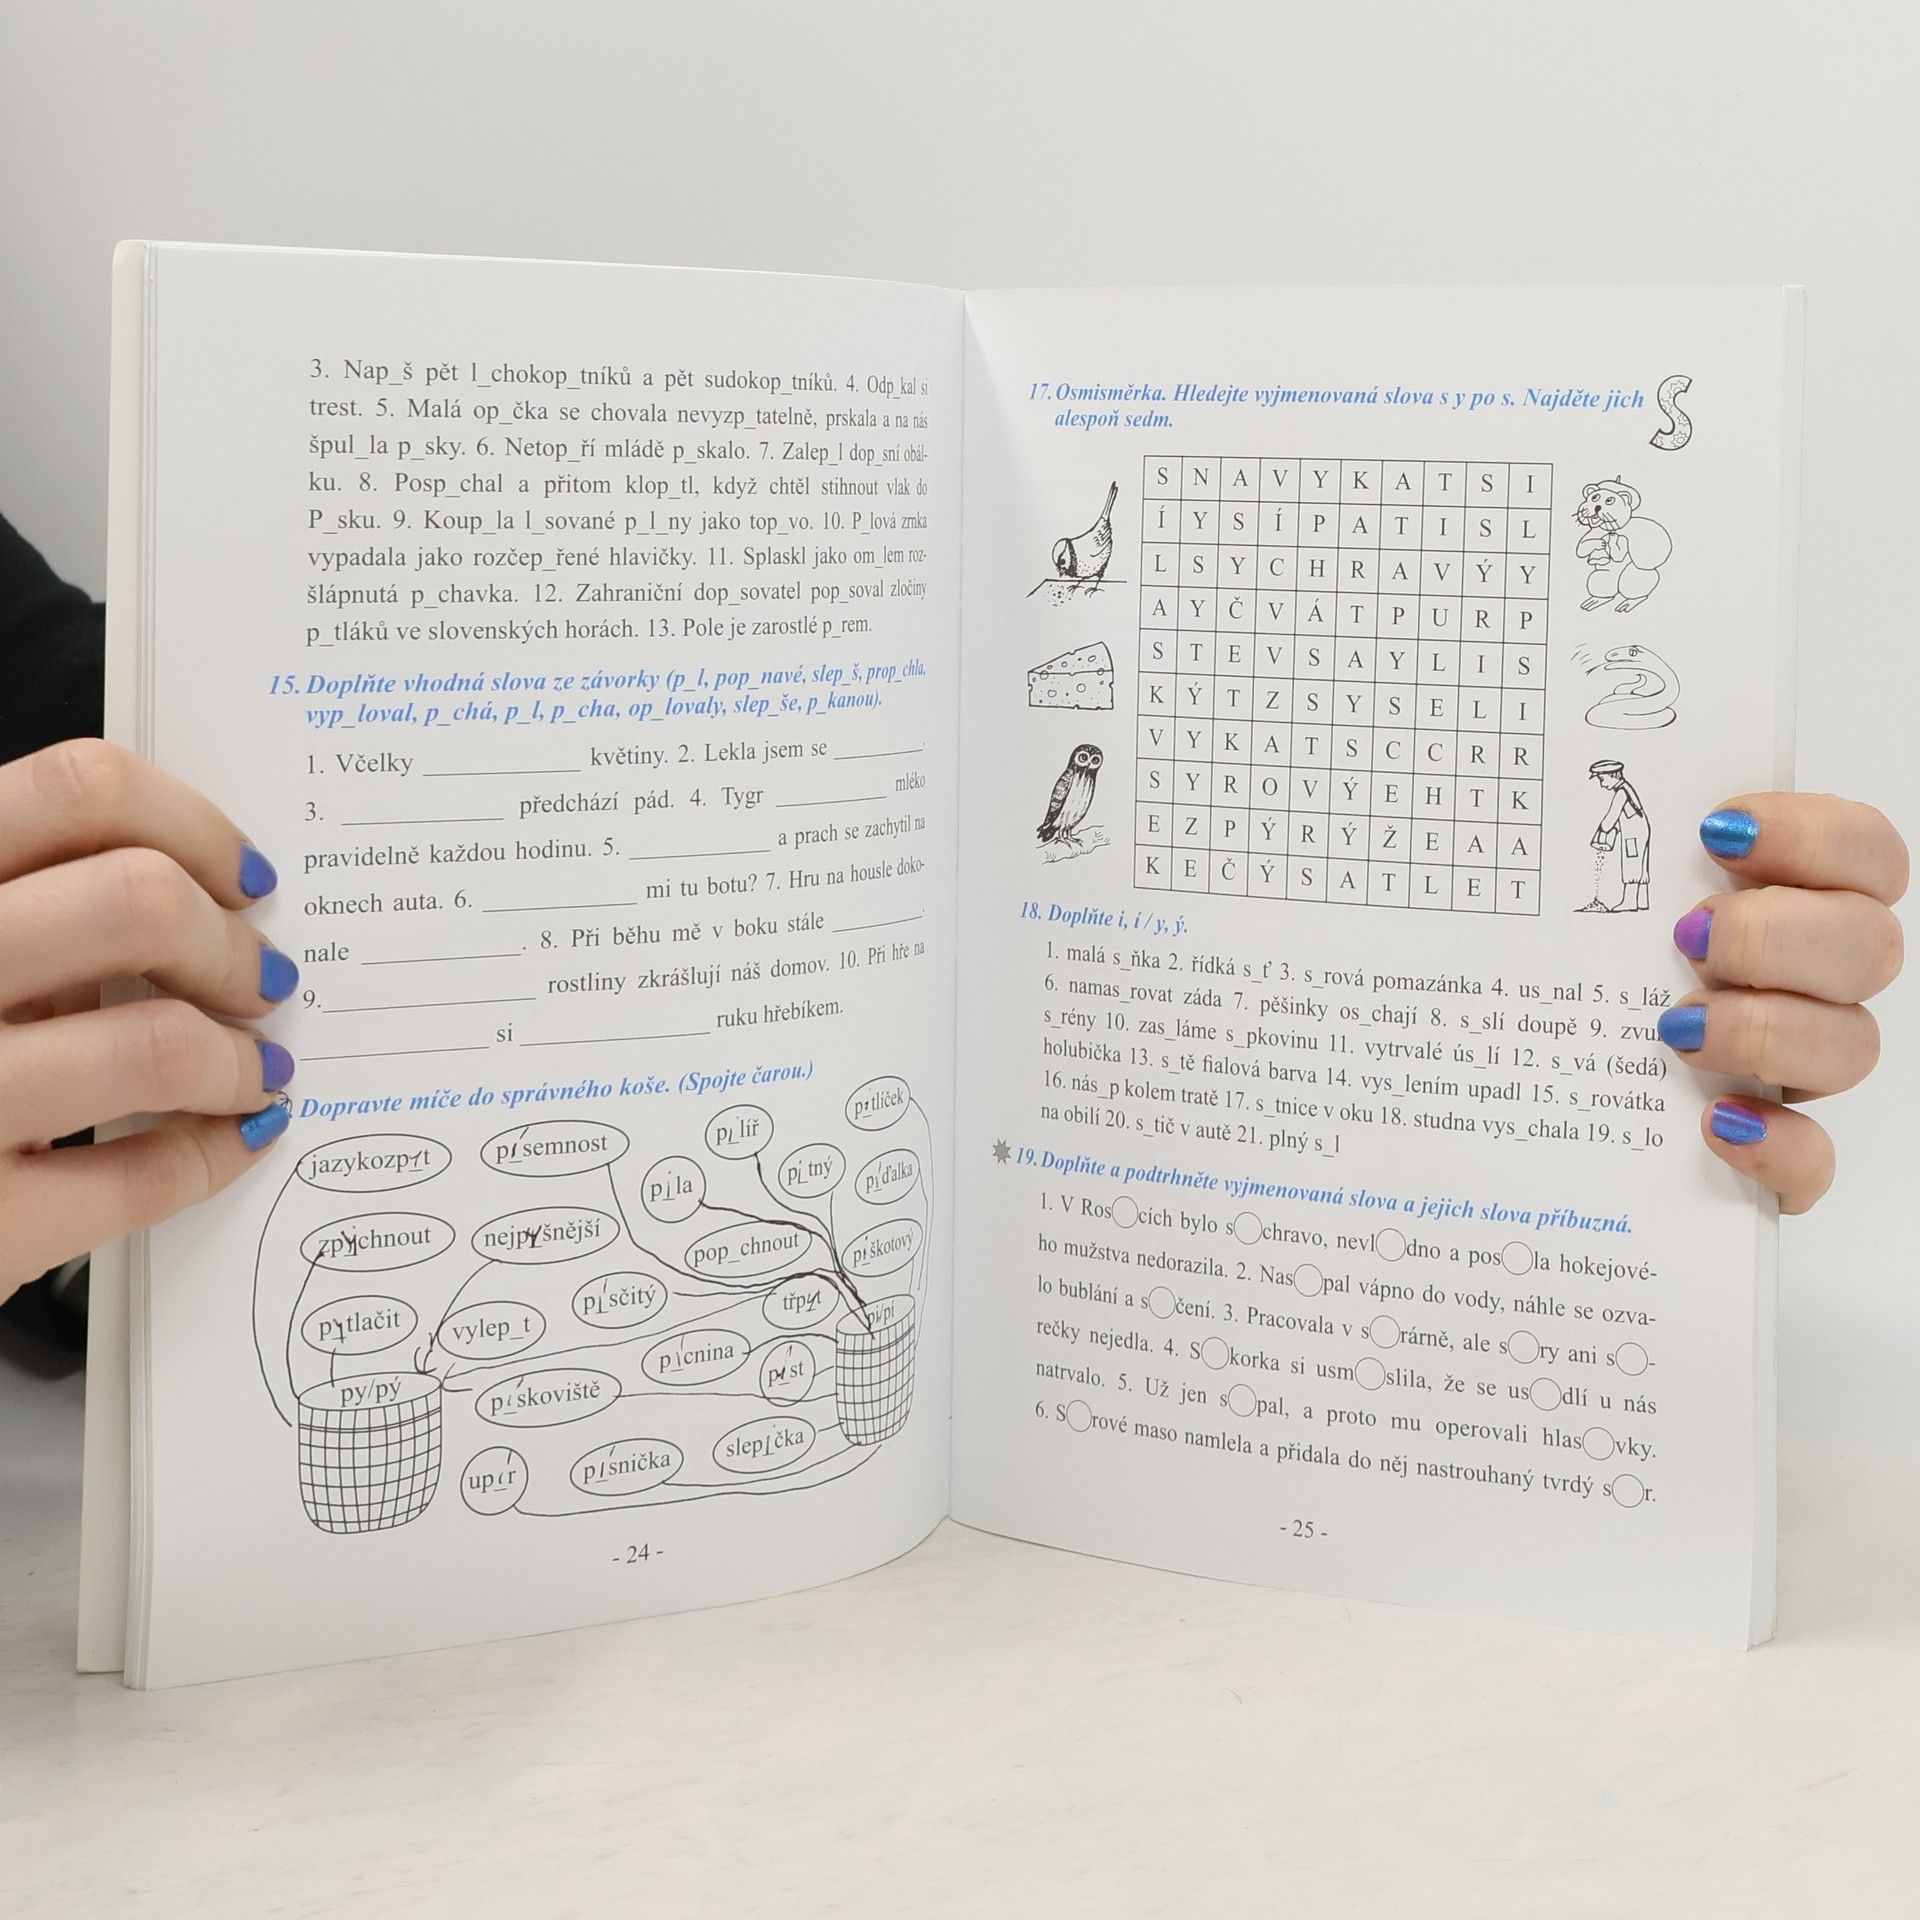 3. Nap_š pět l_chokop_tníků a pět sudokop_tníků. 4. Odp_kal si
trest. 5. Malá op_čka se chovala nevyzp_tatelně, prskala a na nás
špul_la p_sky. 6. Netop_ří mládě p_skalo. 7. Zalep_l dop_sní obál-
ku. 8. Posp_chal a přitom klop_tl, když chtěl stihnout vlak do
P_sku. 9. Koup_la l_sované p_l_ny jako top_vo. 10. P_lová zrnka
vypadala jako rozčep_řené hlavičky. 11. Splaskl jako om_lem roz-
šlápnutá p_chavka. 12. Zahraniční dop_sovatel pop_soval zločiny
p_tláků ve slovenských horách. 13. Pole je zarostlé p_rem.
15. Doplňte vhodná slova ze závorky (p_l, pop_navé, slep_š, prop_chla,
vyp_loval, p_chá, p_l, p_cha, op_lovaly, slep_še, p_kanou).
1. Včelky ____________ květiny. 2. Lekla jsem se _______.
3. ____________ předchází pád. 4. Tygr ________ mléko
pravidelně každou hodinu. 5. __________ a prach se zachytil na
oknech auta. 6. __________ mi tu botu? 7. Hru na housle doko-
nale ____________. 8. Při běhu mě v boku stále _______.
9.________________ rostliny zkrášlují náš domov. 10. Při hře na
______________ si ______________ ruku hřebíkem.
Dopravte míče do správného koše. (Spojte čarou.)
jazykozpyt písemnost pilíř pytlíček
pila pitný píďalka
zpychnout nejpyšnější pop_chnout piškotový
pytlačit vylep_t písčitý třpyt pi/pí
py/pý pískoviště picnina píst
upír písnička slepička
- 24 -
17. Osmisměrka. Hledejte vyjmenovaná slova s y po s. Najděte jich
alespoň sedm.
S
S N A V Y K A T S I
Í Y S Í P A T I S L
L S Y C H R A V Ý Y
A Y Č V Á T P U R P
S T E V S A Y L I S
K Ý T Z S Y S E L I
V Y K A T S C C R R
S Y R O V Ý E H T K
E Z P Ý R Ý Ž E A A
K E Č Ý S A T L E T
18. Doplňte i, í / y, ý.
1. malá s_ňka 2. řídká s_ť 3. s_rová pomazánka 4. us_nal 5. s_láž
6. namas_rovat záda 7. pěšinky os_chají 8. s_slí doupě 9. zvu
s_rény 10. zas_láme s_pkovinu 11. vytrvalé ús_lí 12. s_vá (šedá)
holubička 13. s_tě fialová barva 14. vys_lením upadl 15. s_rovátka
16. nás_p kolem tratě 17. s_tnice v oku 18. studna vys_chala 19. s_lo
na obilí 20. s_tič v autě 21. plný s_l
19. Doplňte a podtrhněte vyjmenovaná slova a jejich slova příbuzná.
1. V Ros◯cích bylo s◯chravo, nevl◯dno a pos◯la hokejové-
ho mužstva nedorazila. 2. Nas◯pal vápno do vody, náhle se ozva-
lo bublání a s◯čení. 3. Pracovala v s◯rárně, ale s◯ry ani s◯-
rečky nejedla. 4. S◯korka si usm◯slila, že se us◯dlí u nás
natrvalo. 5. Už jen s◯pal, a proto mu operovali hlas◯vky.
6. S◯rové maso namlela a přidala do něj nastrouhaný tvrdý s◯r.
- 25 -